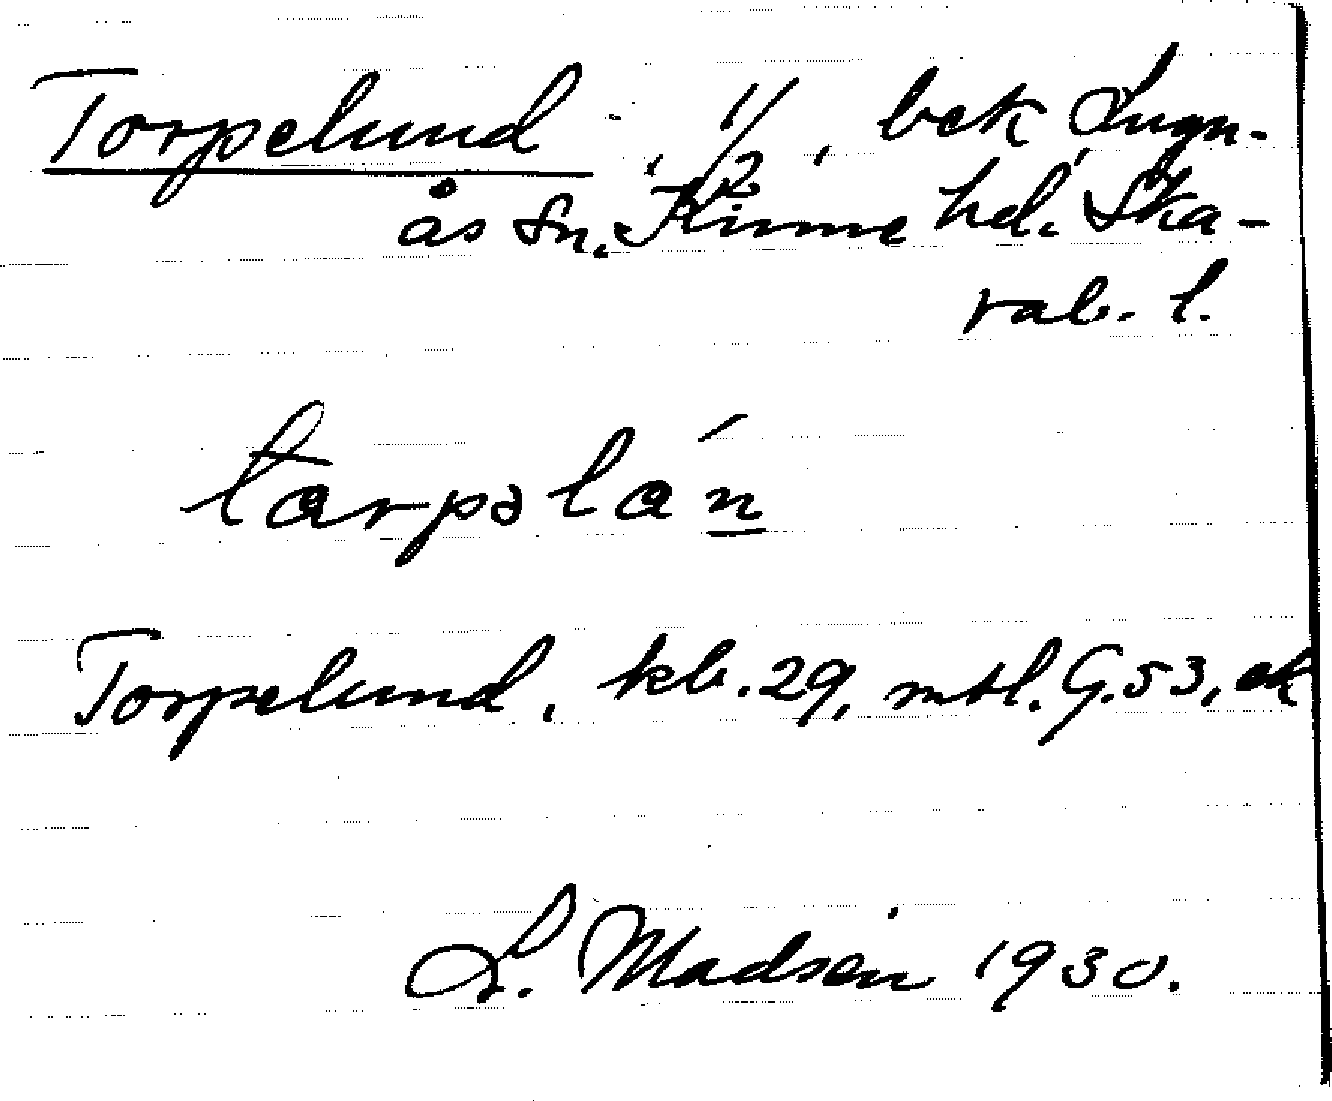 Torpelund, 1/2, bek Lugn-
ås Sn. Kinne hd. Ska-
rab. l.
tarpəlán
Torpelund, kb. 29, mtl. G. 53, ek
L. Madsén 1930.